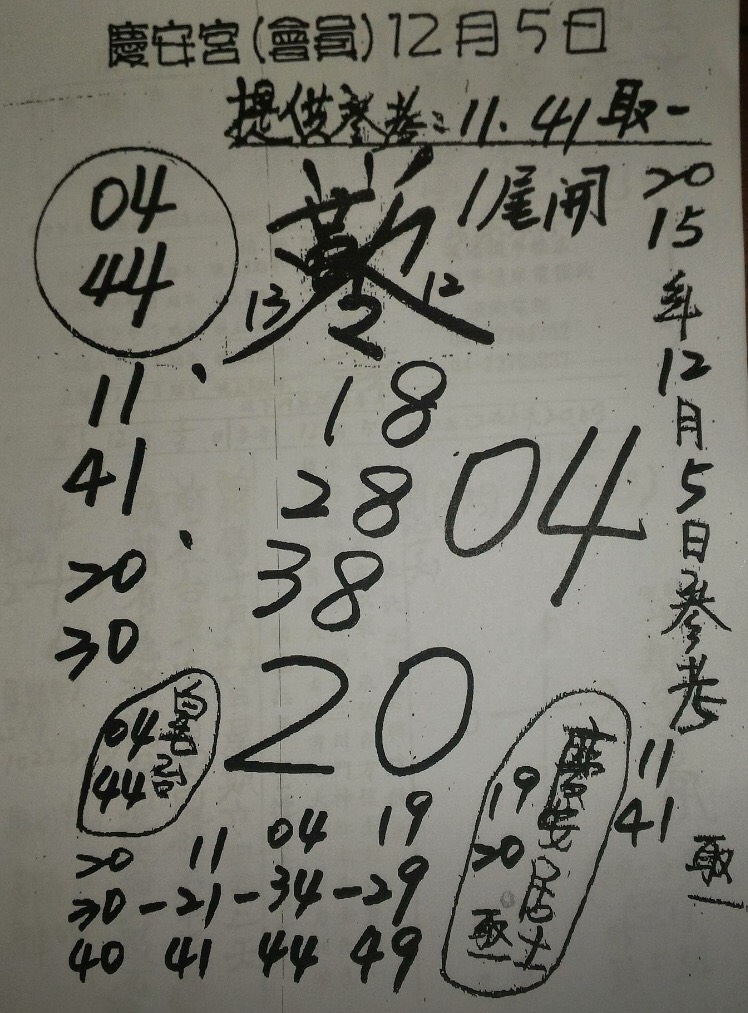 慶安宮(會員)12月5日
提供參考:11.41取一
04
44
1尾開
13 2 12
2015年12月5日參考
11
41
20
30
18
28
38
04
20
04
44
慶安居士
19
20
取一
11
41
取一
20 11 04 19
30-21-34-29
40 41 44 49